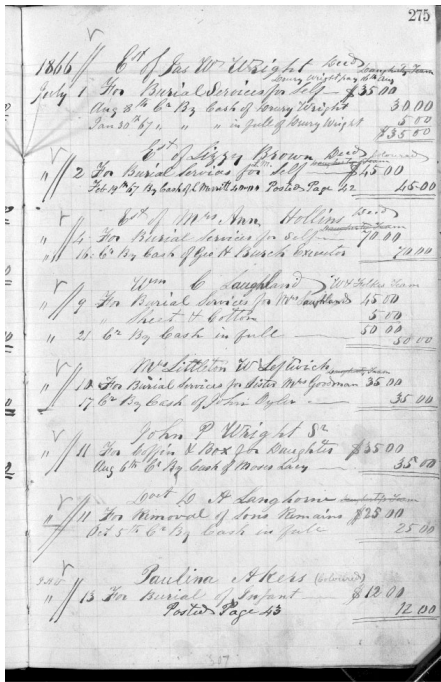 275
1866 Est of Jas W Wright Decd
July 1 For Burial Services for Self — $35.00
Aug 8th Cr By Cash of Drury Wright 30.00
Jan 30th 67 " " " in full of Drury Wright 5.00
$35.00
Est of Lizzy Brown Decd Coloured
" 2 For Burial Services for Self — $45.00
Feb 14th 67 By Cash of Posted Page 42 45.00
Est of Mrs Ann Hollins Decd
" 4 For Burial Services for Self — 70.00
" 16 Cr By Cash of Geo H Burch Executor 70.00
Wm C Laughland
" 9 For Burial Services for Mrs Laughland 45.00
" Sheet & Cotton 5.00
50.00
" 21 Cr By Cash in full — 50.00
Mrs Littleton W Leftwich
" 10 For Burial Services for Sister Mrs Goodman 35.00
" 17 Cr By Cash of John Oyler — 35.00
John P Wright Sr
" 11 For Coffin & Box for Daughter $35.00
Aug 6th Cr By Cash of Moses Lacy — 35.00
Doct D A Langhorne
" 11 For Removal of Sons Remains $25.00
Oct 5th Cr By Cash in full 25.00
Paulina Akers (Coloured)
" 13 For Burial of Infant — $12.00
Posted Page 43 12.00